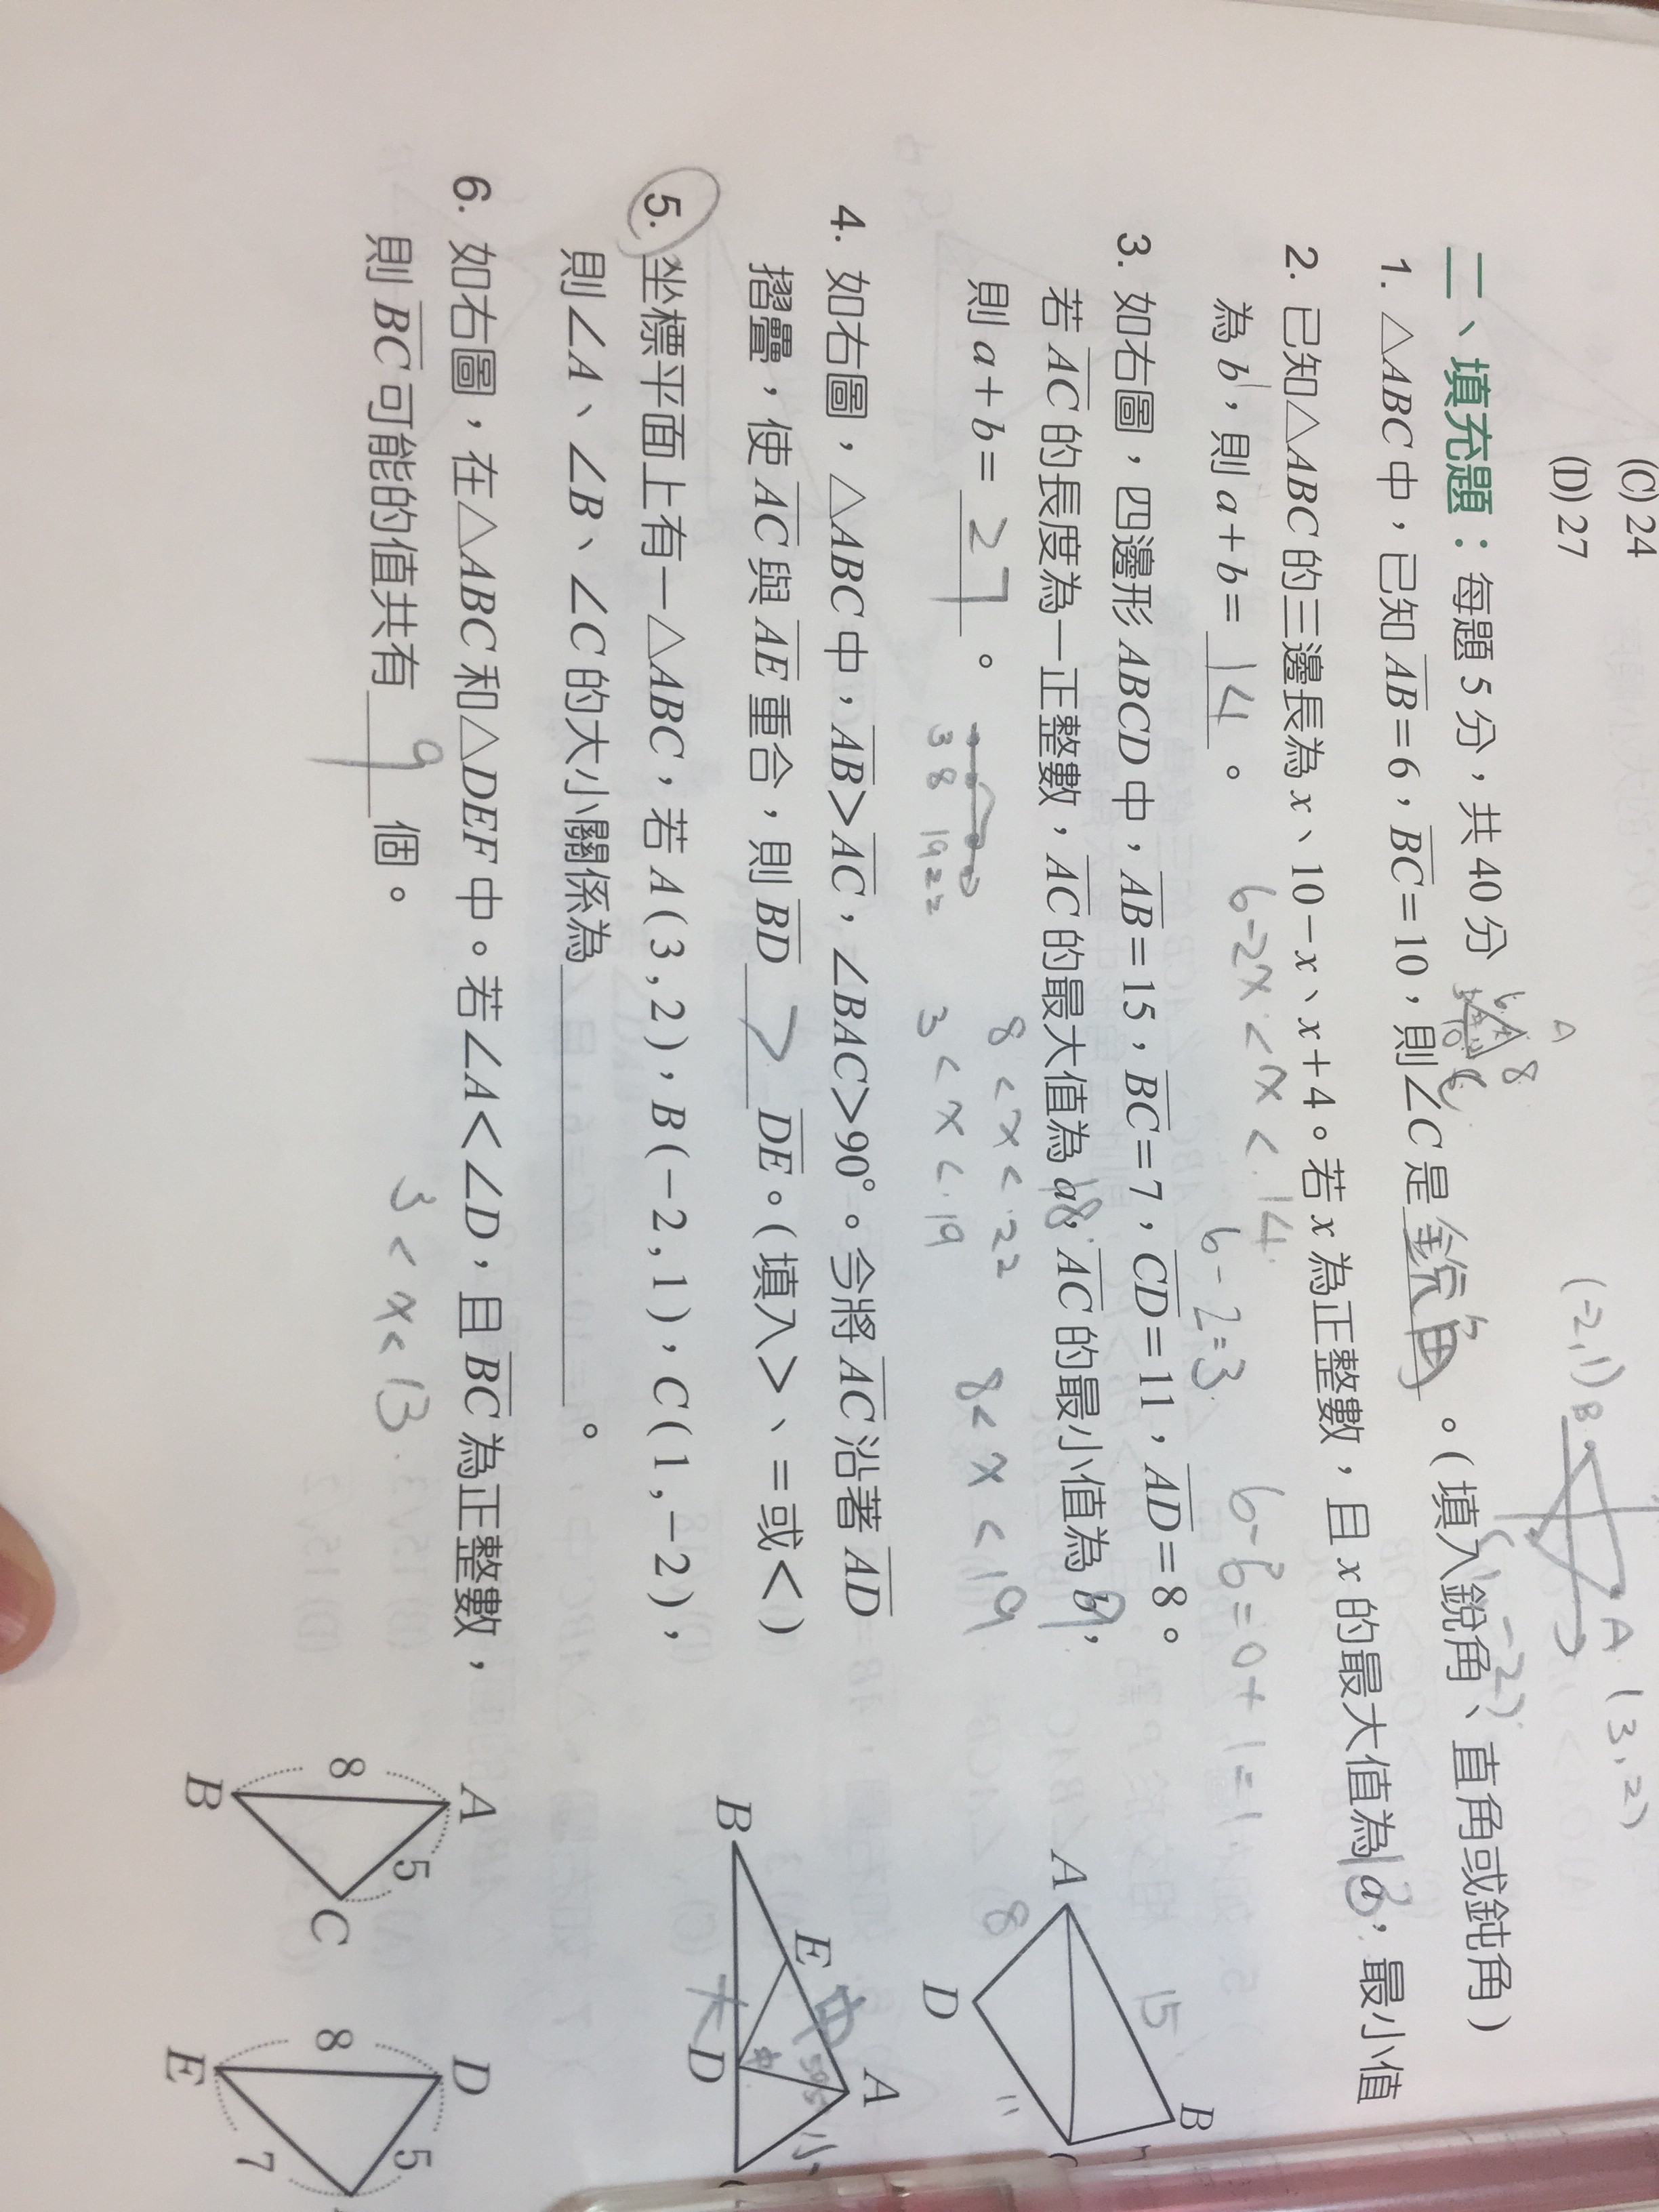 (C) 24
(D) 27
A
(-2,1) B
A (3,2)
二、填充題：每題 5 分，共 40 分
6 8
1. △ABC 中，已知 AB=6，BC=10，則∠C 是 銳角 。(填入銳角、直角或鈍角)
2. 已知△ABC 的三邊長為 x、10-x、x+4。若 x 為正整數，且 x 的最大值為 a，最小值
為 b，則 a+b= 14 。
6-2x<x<14
6-2=3
6-6=0+1=1
3. 如右圖，四邊形 ABCD 中，AB=15，BC=7，CD=11，AD=8。
若 AC 的長度為一正整數，AC 的最大值為 a，AC 的最小值為 b，
18 9
則 a+b= 27 。
3 8 19 22
8<x<22
3<x<19
8<x<19
A B D
15 8 11
4. 如右圖，△ABC 中，AB>AC，∠BAC>90°。今將 AC 沿著 AD
摺疊，使 AC 與 AE 重合，則 BD > DE。(填入>、=或<)
B E A D
中 小 大
5. 坐標平面上有一△ABC，若 A(3,2)，B(-2,1)，C(1,-2)，
則∠A、∠B、∠C 的大小關係為 。
6. 如右圖，在△ABC 和△DEF 中。若∠A<∠D，且 BC 為正整數，
則 BC 可能的值共有 9 個。
3<x<13
A 8 5 B C
D 8 5 E 7